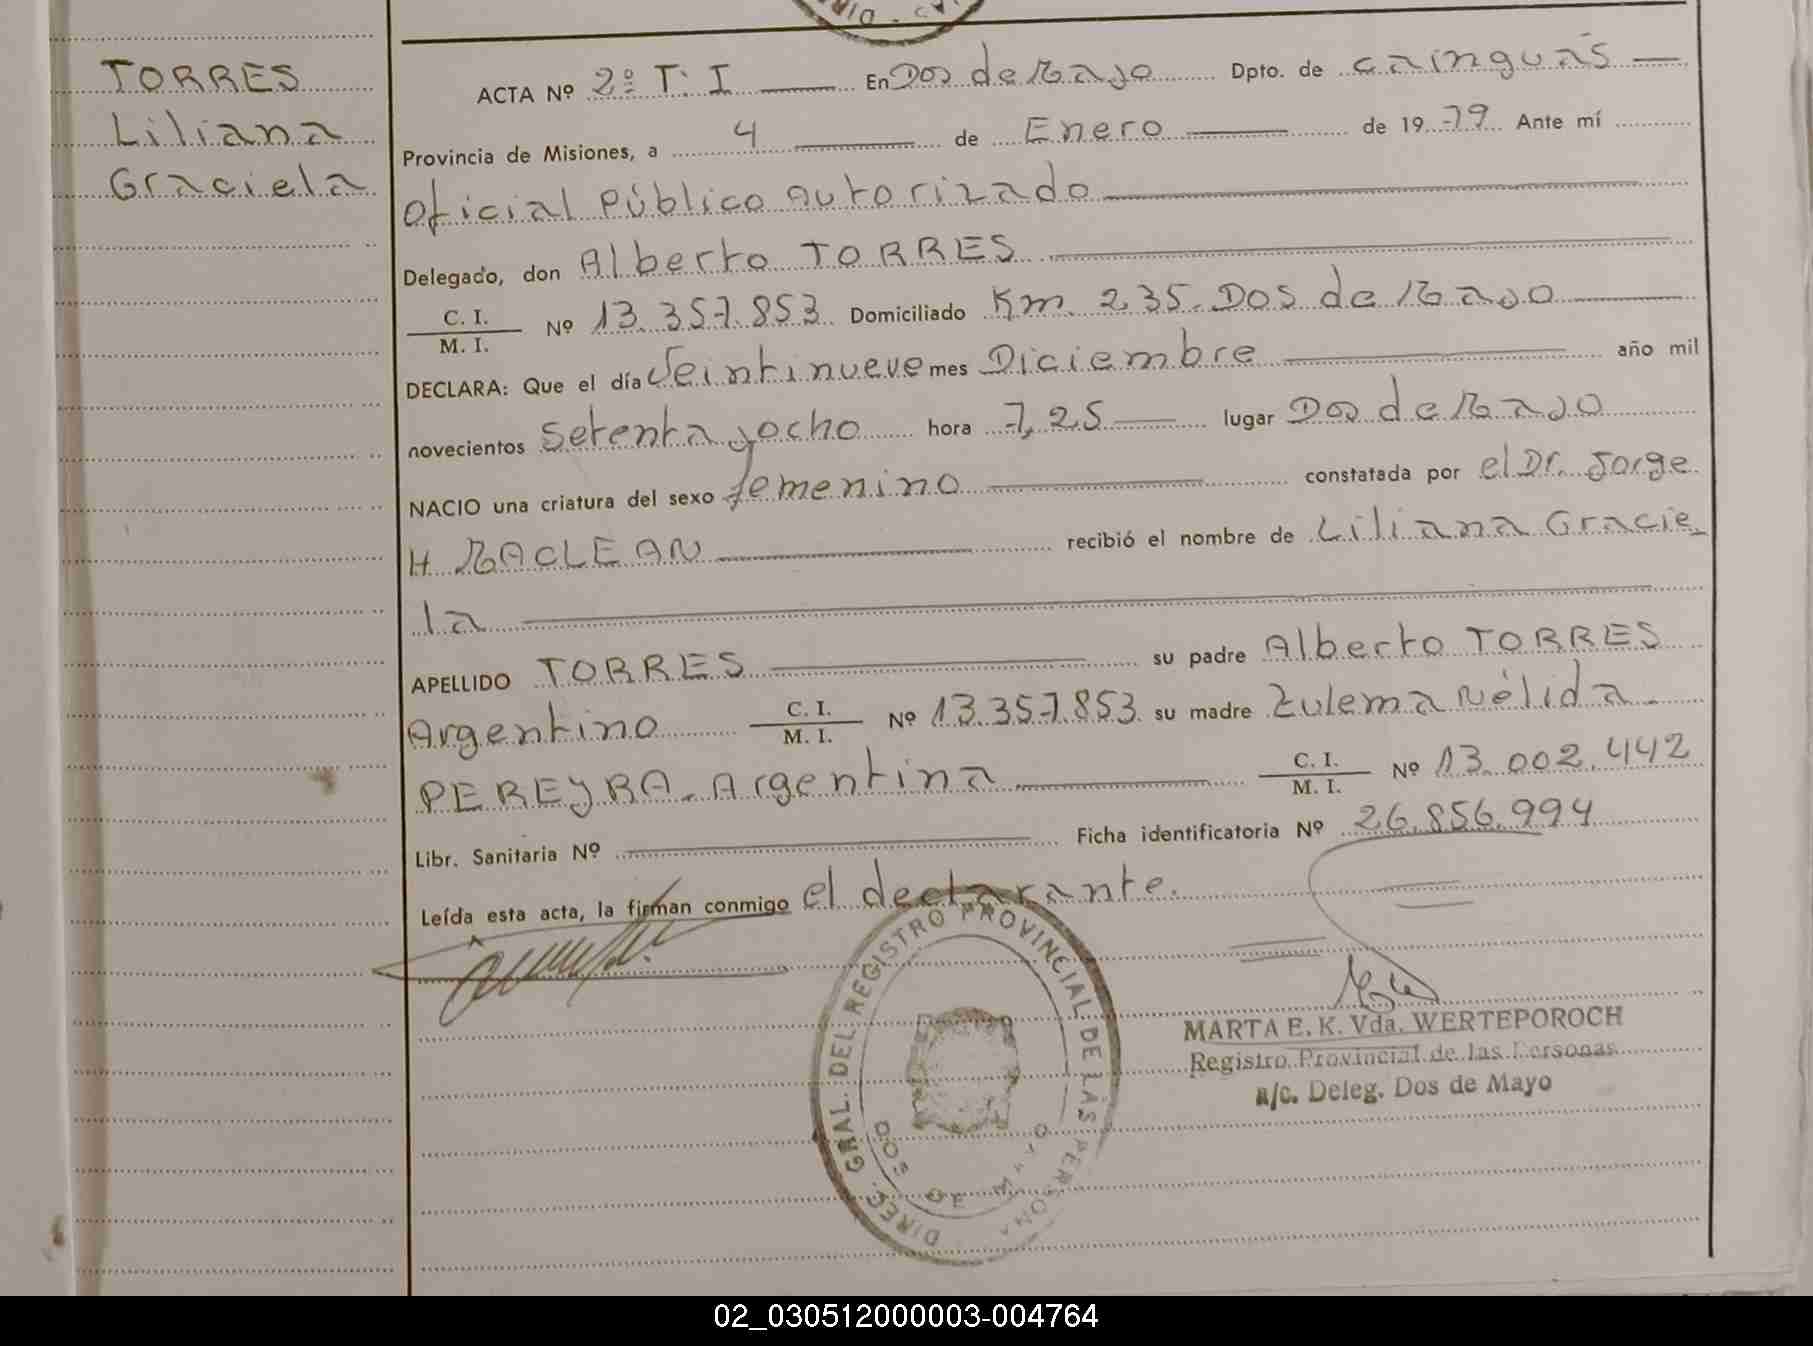 TORRES
Liliana
Graciela
ACTA Nº 2º T: I En Dos de Mayo Dpto. de cainguás
Provincia de Misiones, a 4 de Enero de 19 79 Ante mí
Oficial Público Autorizado
Delegado, don Alberto TORRES
C. I.
M. I. Nº 13.357.853 Domiciliado Km. 235. Dos de Mayo
DECLARA: Que el día Veintinueve mes Diciembre año mil
novecientos setenta y ocho hora 7,25 lugar Dos de Mayo
NACIO una criatura del sexo femenino constatada por el Dr. Jorge
H MACLEAN recibió el nombre de Liliana Gracie
la
APELLIDO TORRES su padre Alberto TORRES
Argentino C. I.
M. I. Nº 13.357.853 su madre Zulema Nélida
PEREYRA. Argentina C. I.
M. I. Nº 13.002.442
Libr. Sanitaria Nº Ficha identificatoria Nº 26.856.994
Leída esta acta, la firman conmigo el declarante.
DIREC. GRAL. DEL REGISTRO PROVINCIAL DE LAS PERSONA
DOS DE MAYO
MARTA E. K. Vda. WERTEPOROCH
Registro Provincial de las Personas
a/c. Deleg. Dos de Mayo
02_030512000003-004764